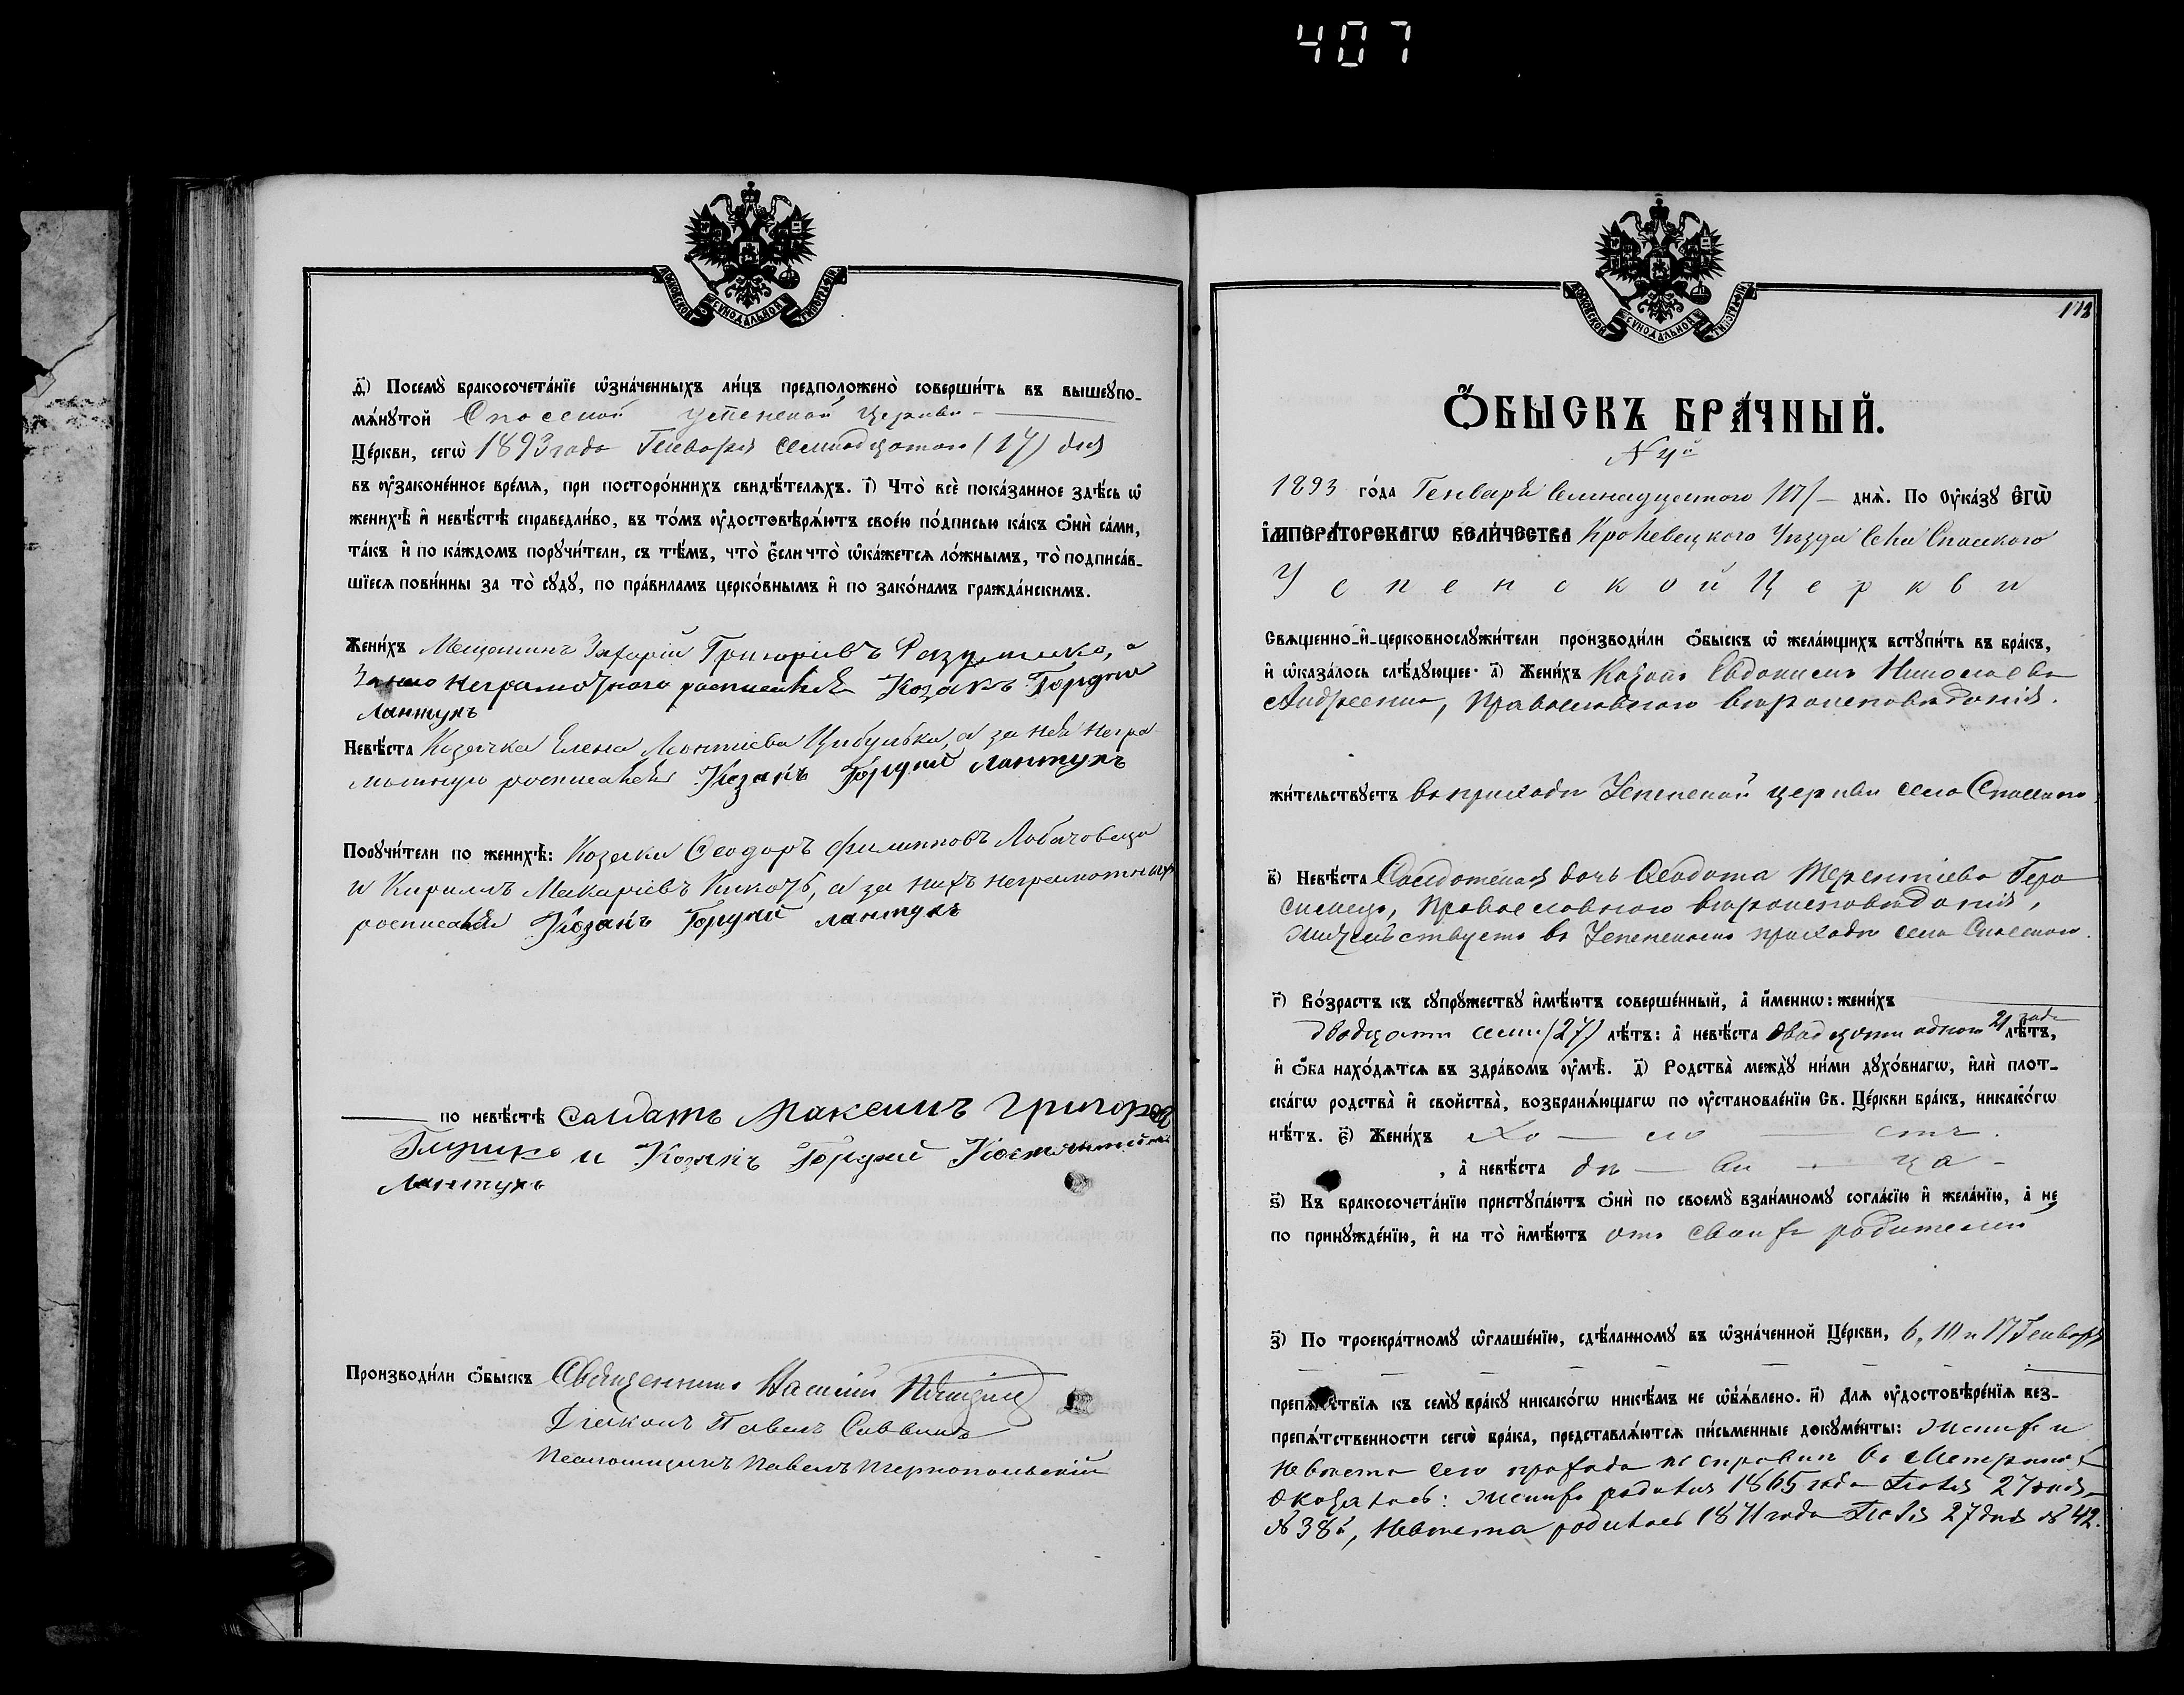 407
МОСКОВСКОЙ СУНОДАЛЬНОЙ ТИПОГРАФІИ
Ѳ҃) Посемꙋ̀ бракосочета́нїе ѡ҆зна́ченныхъ ли́цъ предположено̀ соверши́ть въ вышеꙋпо-
мѧ́нꙋтой Спасской Успенской Церкви
Це́ркви, сегѡ̀ 1893 года Генваря семнадцатого (17) дня
въ ᲂу҆зако́ненное вре́мѧ, при посторо́ннихъ свидѣ́телѧхъ. І҃) Что̀ всѐ пока́занное здѣ́сь ѡ҆
женихѣ̀ и҆ невѣ́стѣ справедли́во, въ то́мъ ᲂу҆достовѣрѧ́ютъ свое́ю по́дписью ка́къ ѻ҆нѝ са́ми,
та́къ и҆ по ка́ждомъ порꙋчи́тели, съ тѣ́мъ, что̀ є҆́сли что̀ ѡ҆ка́жетсѧ ло́жнымъ, то̀ подписа́в-
шїесѧ пови́нны за то̀ сꙋдꙋ̀, по пра́виламъ церко́внымъ и҆ по зако́намъ гражда́нскимъ.
Жени́хъ Мещанинъ Захарій Григоріевъ Разумейко, а
за него неграмотного росписался Козакъ Гордій
Лантухъ
Невѣ́ста Козачка Елена Леонтіева Цибулька, а за ней негра
мотную росписался Козакъ Гордій Лантухъ
Порꙋчи́тели по женихѣ̀: Козаки Ѳеодоръ Филиповъ
и Кириллъ Макаріевъ, а за нихъ неграмотныхъ
росписался Козакъ Гордій Лантухъ
по невѣ́стѣ Солдатъ Максимъ Григорьев
Глушко и Козакъ Гордий
Лантухъ
Производи́ли ѻ҆́быскъ Священникъ Василій
Діаконъ Павелъ Саввинъ
Псаломщикъ Павелъ Тернопольскій
МОСКОВСКОЙ СУНОДАЛЬНОЙ ТИПОГРАФІИ
113
Ѻ҆́БЫСКЪ БРА́ЧНЫЙ.
№ 4й
1893 го́да Генваря Семнадцатого /17/ днѧ̀. По ᲂу҆ка́зꙋ Є҆ГѠ̀
І҆МПЕРА́ТОРСКАГѠ ВЕЛИ́ЧЕСТВА Кролевецкого Уезда Села Спаского
Успенской Церкви
Свѧщенно-и҆-церковнослꙋжи́тели производи́ли ѻ҆́быскъ ѡ҆ жела́ющихъ встꙋпи́ть въ бра́къ,
и҆ ѡ҆каза́лось слѣ́дꙋющее· а҃) Жени́хъ Козакъ Евдокимъ Николаевъ
Андреенко, Православного вероисповедания.
жи́тельствꙋетъ въ приходе Успенской церкви села Спасского
в҃) Невѣ́ста Солдатская дочь Ѳеодота Терентіева Гера
сименко, Православного вероисповеданія,
жительствуетъ въ Успенскомъ приходе села Спасского.
г҃) Во́зрастъ къ сꙋпрꙋ́жествꙋ и҆мѣ́ютъ соверше́нный, а҆ и҆́меннѡ: жени́хъ
двадцати семи (27) лѣ́тъ: а҆ невѣ́ста двадцати одного 21 года лѣ́тъ,
и҆ ѻ҆́ба нахо́дѧтсѧ въ здра́вомъ ᲂу҆мѣ̀. д҃) Родства̀ междꙋ̀ ни́ми дꙋхо́внагѡ, и҆лѝ плот-
ска́гѡ родства̀ и҆ сво́йства̀, возбранѧ́ющагѡ по ᲂу҆становле́нїю Св. Це́ркви бра́къ, никако́гѡ
нѣ́тъ. є҃) Жени́хъ хо — ло — стъ.
, а҆ невѣ́ста дѣ — ви — ца
ѕ҃) Къ бракосочета́нїю пристꙋпа́ютъ ѻ҆нѝ по своемꙋ̀ взаи́мномꙋ согла́сїю и҆ жела́нїю, а҆ не
по принꙋжде́нїю, и҆ на то̀ и҆мѣ́ютъ отъ своихъ родителей
з҃) По троекра́тномꙋ ѡ҆глаше́нїю, сдѣ́ланномꙋ въ ѡ҆зна́ченной Це́ркви, 6, 10 и 17 Генваря
препѧ́тствїѧ къ семꙋ̀ бра́кꙋ никако́гѡ никѣ́мъ не ѡ҆б̾ѧ́влено. и҃) Длѧ ᲂу҆достовѣре́нїѧ без-
препѧ́тственности сегѡ̀ бра́ка, представлѧ́ютсѧ пи́сьменные докꙋме́нты: женихъ и
невеста сего прихода по справке въ Метрикахъ
оказалось: женихъ родился 1865 года Іюля 27 дня
№ 38й, Невеста родилась 1871 года Іюля 27 дня № 42.